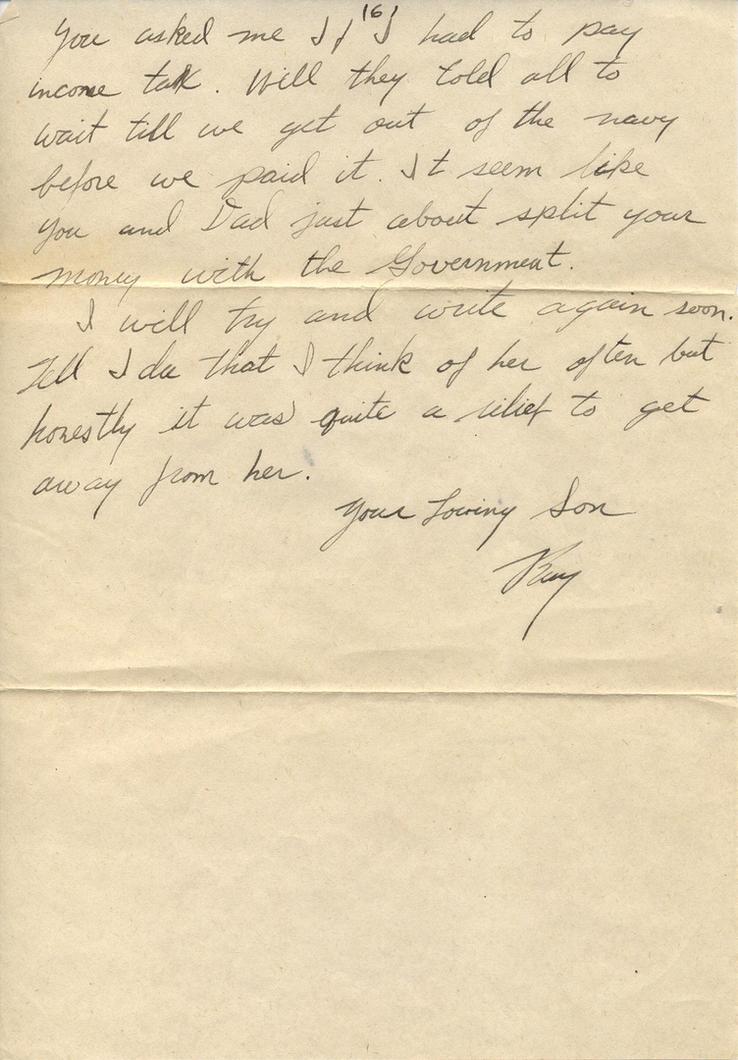 (6)
You asked me If I had to pay
income tax. Will they told all to
wait till we get out of the navy
before we paid it. It seem like
you and Dad just about split your
money with the Government.
I will try and write again soon.
Tell Ida that I think of her often but
honestly it was quite a relief to get
away from her.
Your Loving Son
Ray